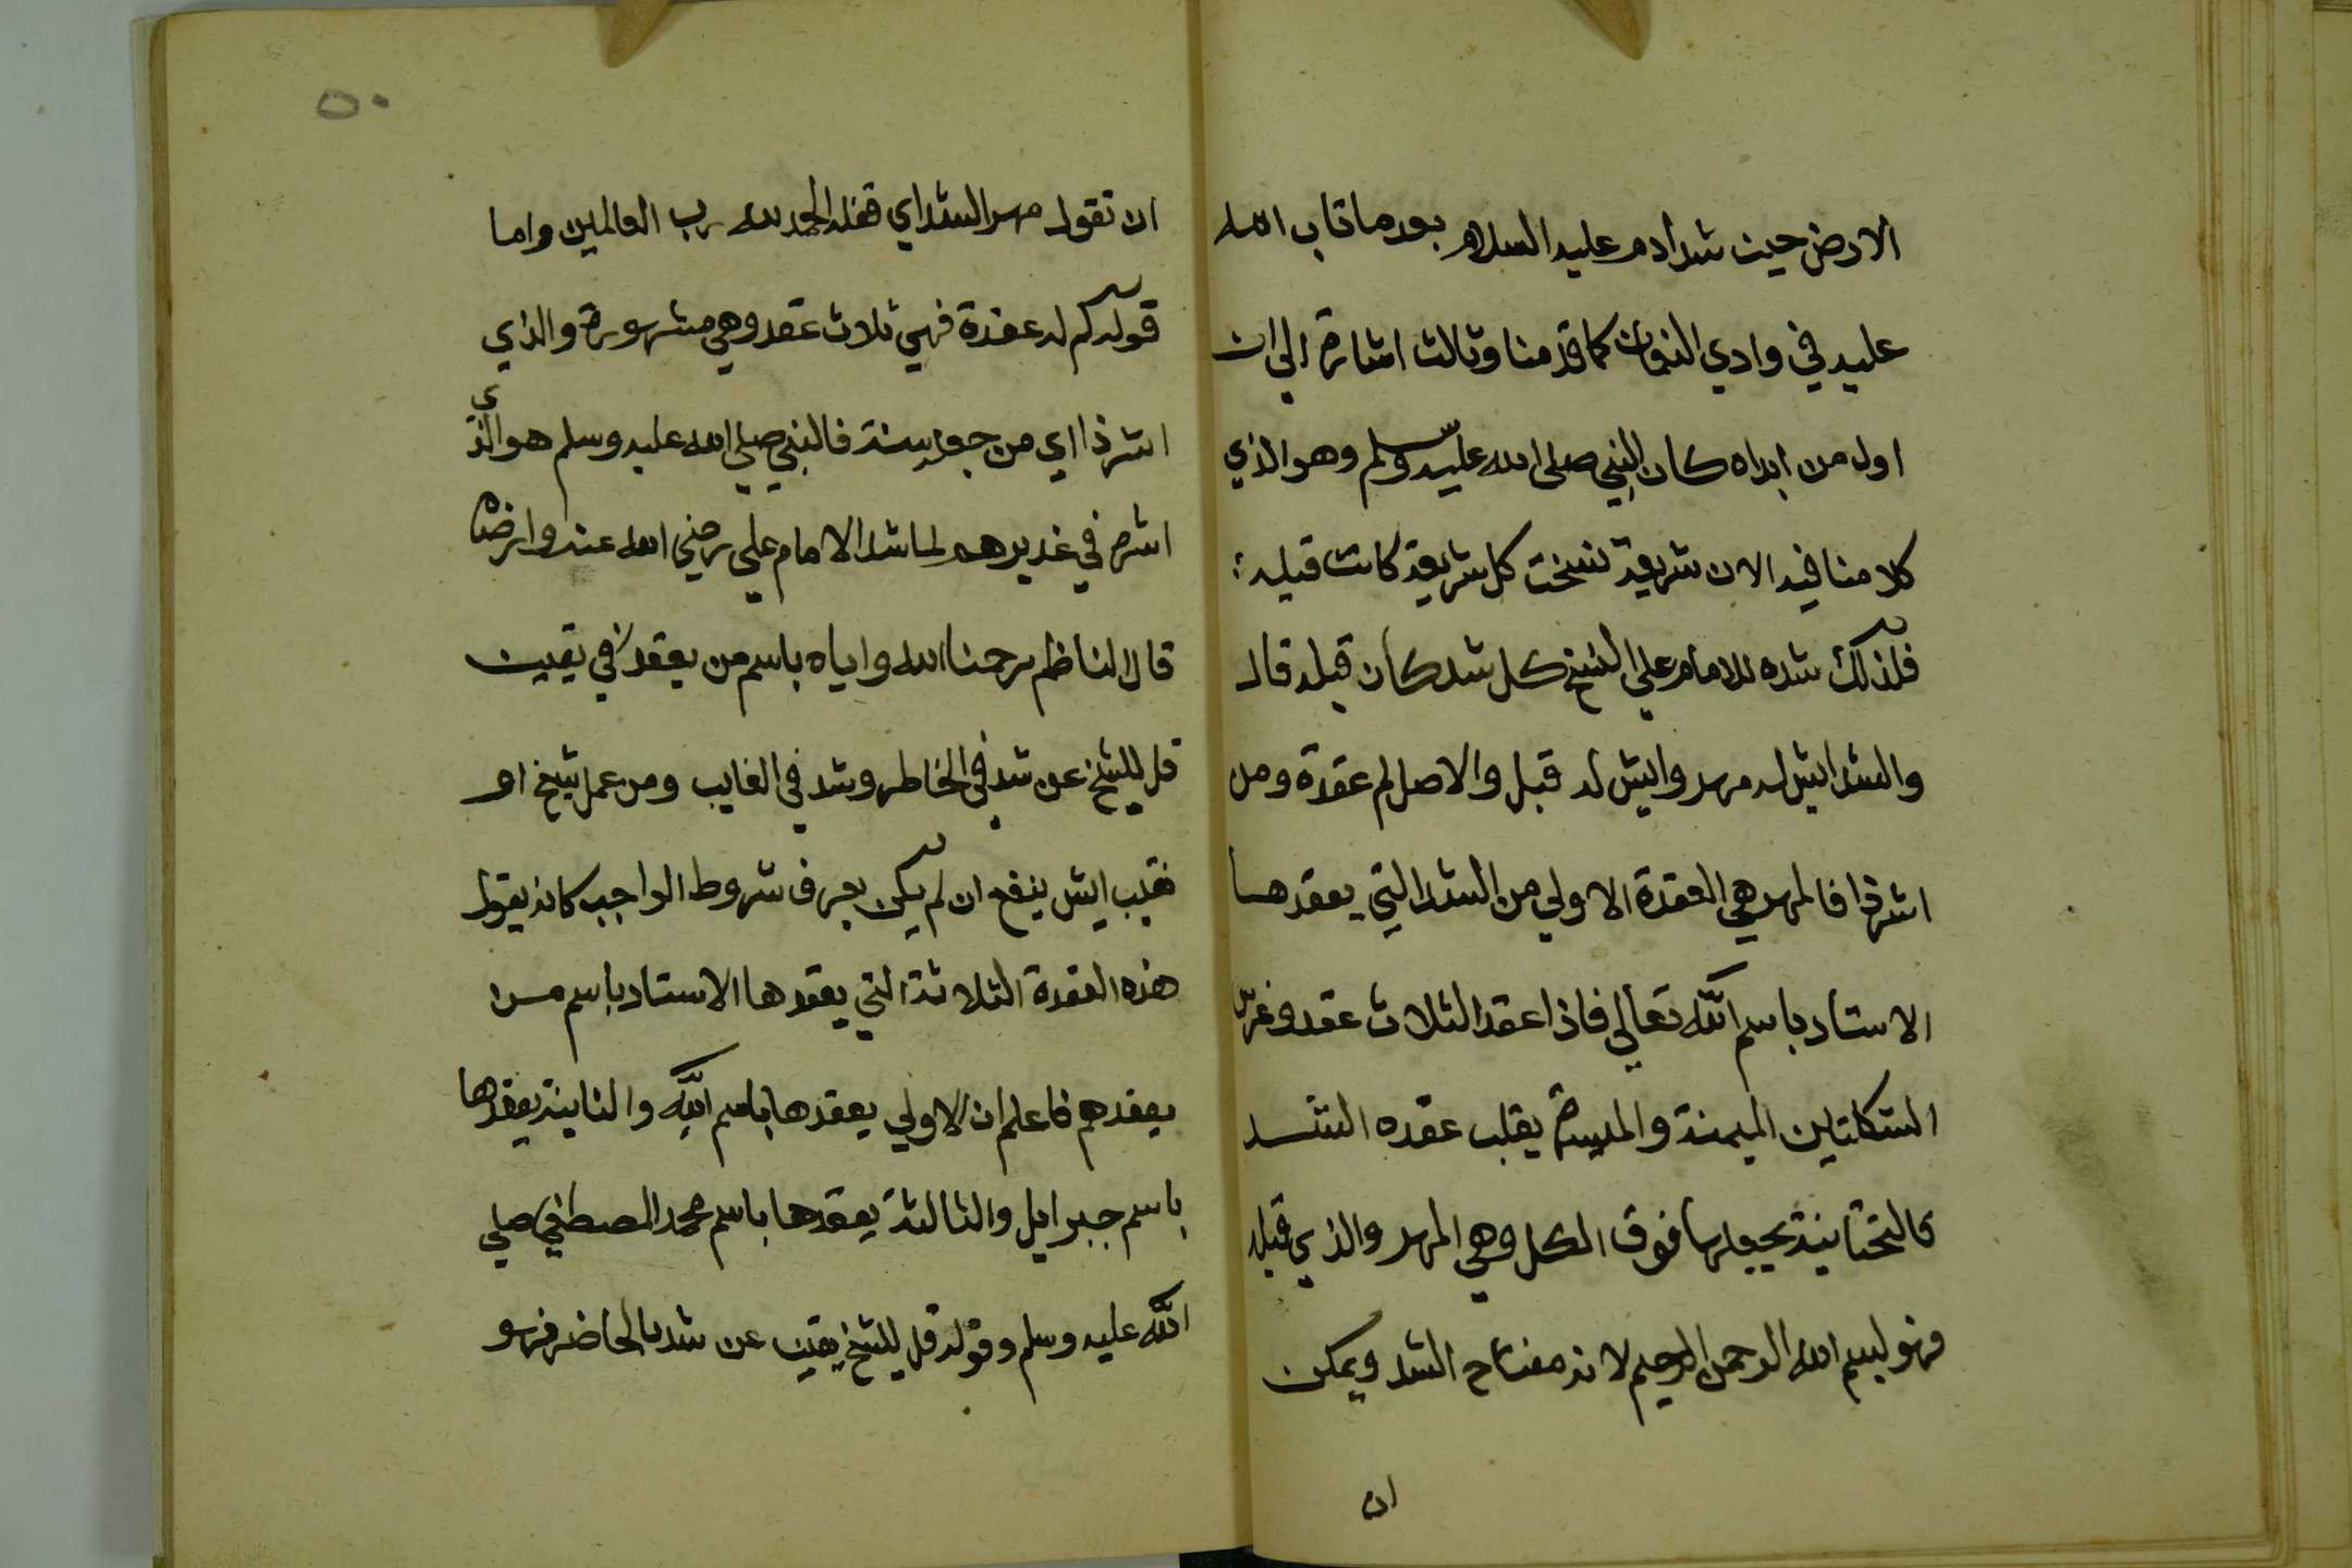 الارض حين شد ادم عليه السلام بعد ما تاب الله
عليه في وادي النعمان كما قدمنا وثالث اشارة الى ان
اول من ابداه كان النبي صلى الله عليه وسلم وهو الذي
كلامنا فيه الان شريعة نسخت كل شريعة كانت قبله
فلذلك شده للامام علي النسخ كل شد كان قبله قال
والشد ايش له مهر وايش له قبل والاصل لم عقدة ومن
اشهر ذا فالمهر هي العقدة الاولي من الشد التي يعقدها
الاستاد باسم الله تعالي فاذا عقد الثلاث عقد وغرس
الشكلتين الميمنة والميسرة يقلب عقده الشد
كالتحتانية يجعلها فوق الكل وهي المهر والذي قبله
فهو بسم الله الرحمن الرحيم لانه مفتاح الشد ويمكن
ان
٥٠
ان تقول مهر الشد اي قفله الحمد لله رب العالمين واما
قوله كم له عقدة فهي ثلاث عقد وهي مشهورة والذي
اشهر ذا اي من جعله سنة فالنبي صلي الله عليه وسلم هو الذي
اشهره في غدير هم لما شد الامام علي رضي الله عنه وارضاه
قال الناظم رحمنا الله واياه باسم من يعقد في يقين
قل للشيخ عن شد في الخاطر وشد في الغايب ومن عمل شيخ او
نقيب ايش ينفع ان لم يكن يعرف شروط الواجب كانه يقول
هذه العقدة الثلاثة التي يعقدها الاستاد باسم من
يعقدهم فاعلم ان الاولي يعقدها باسم الله والثانية يعقدها
باسم جبرايل والثالثة يعقدها باسم محمد المصطفي صلي
الله عليه وسلم وقوله قل للشيخ يقين عن شد بالحاضر فهو